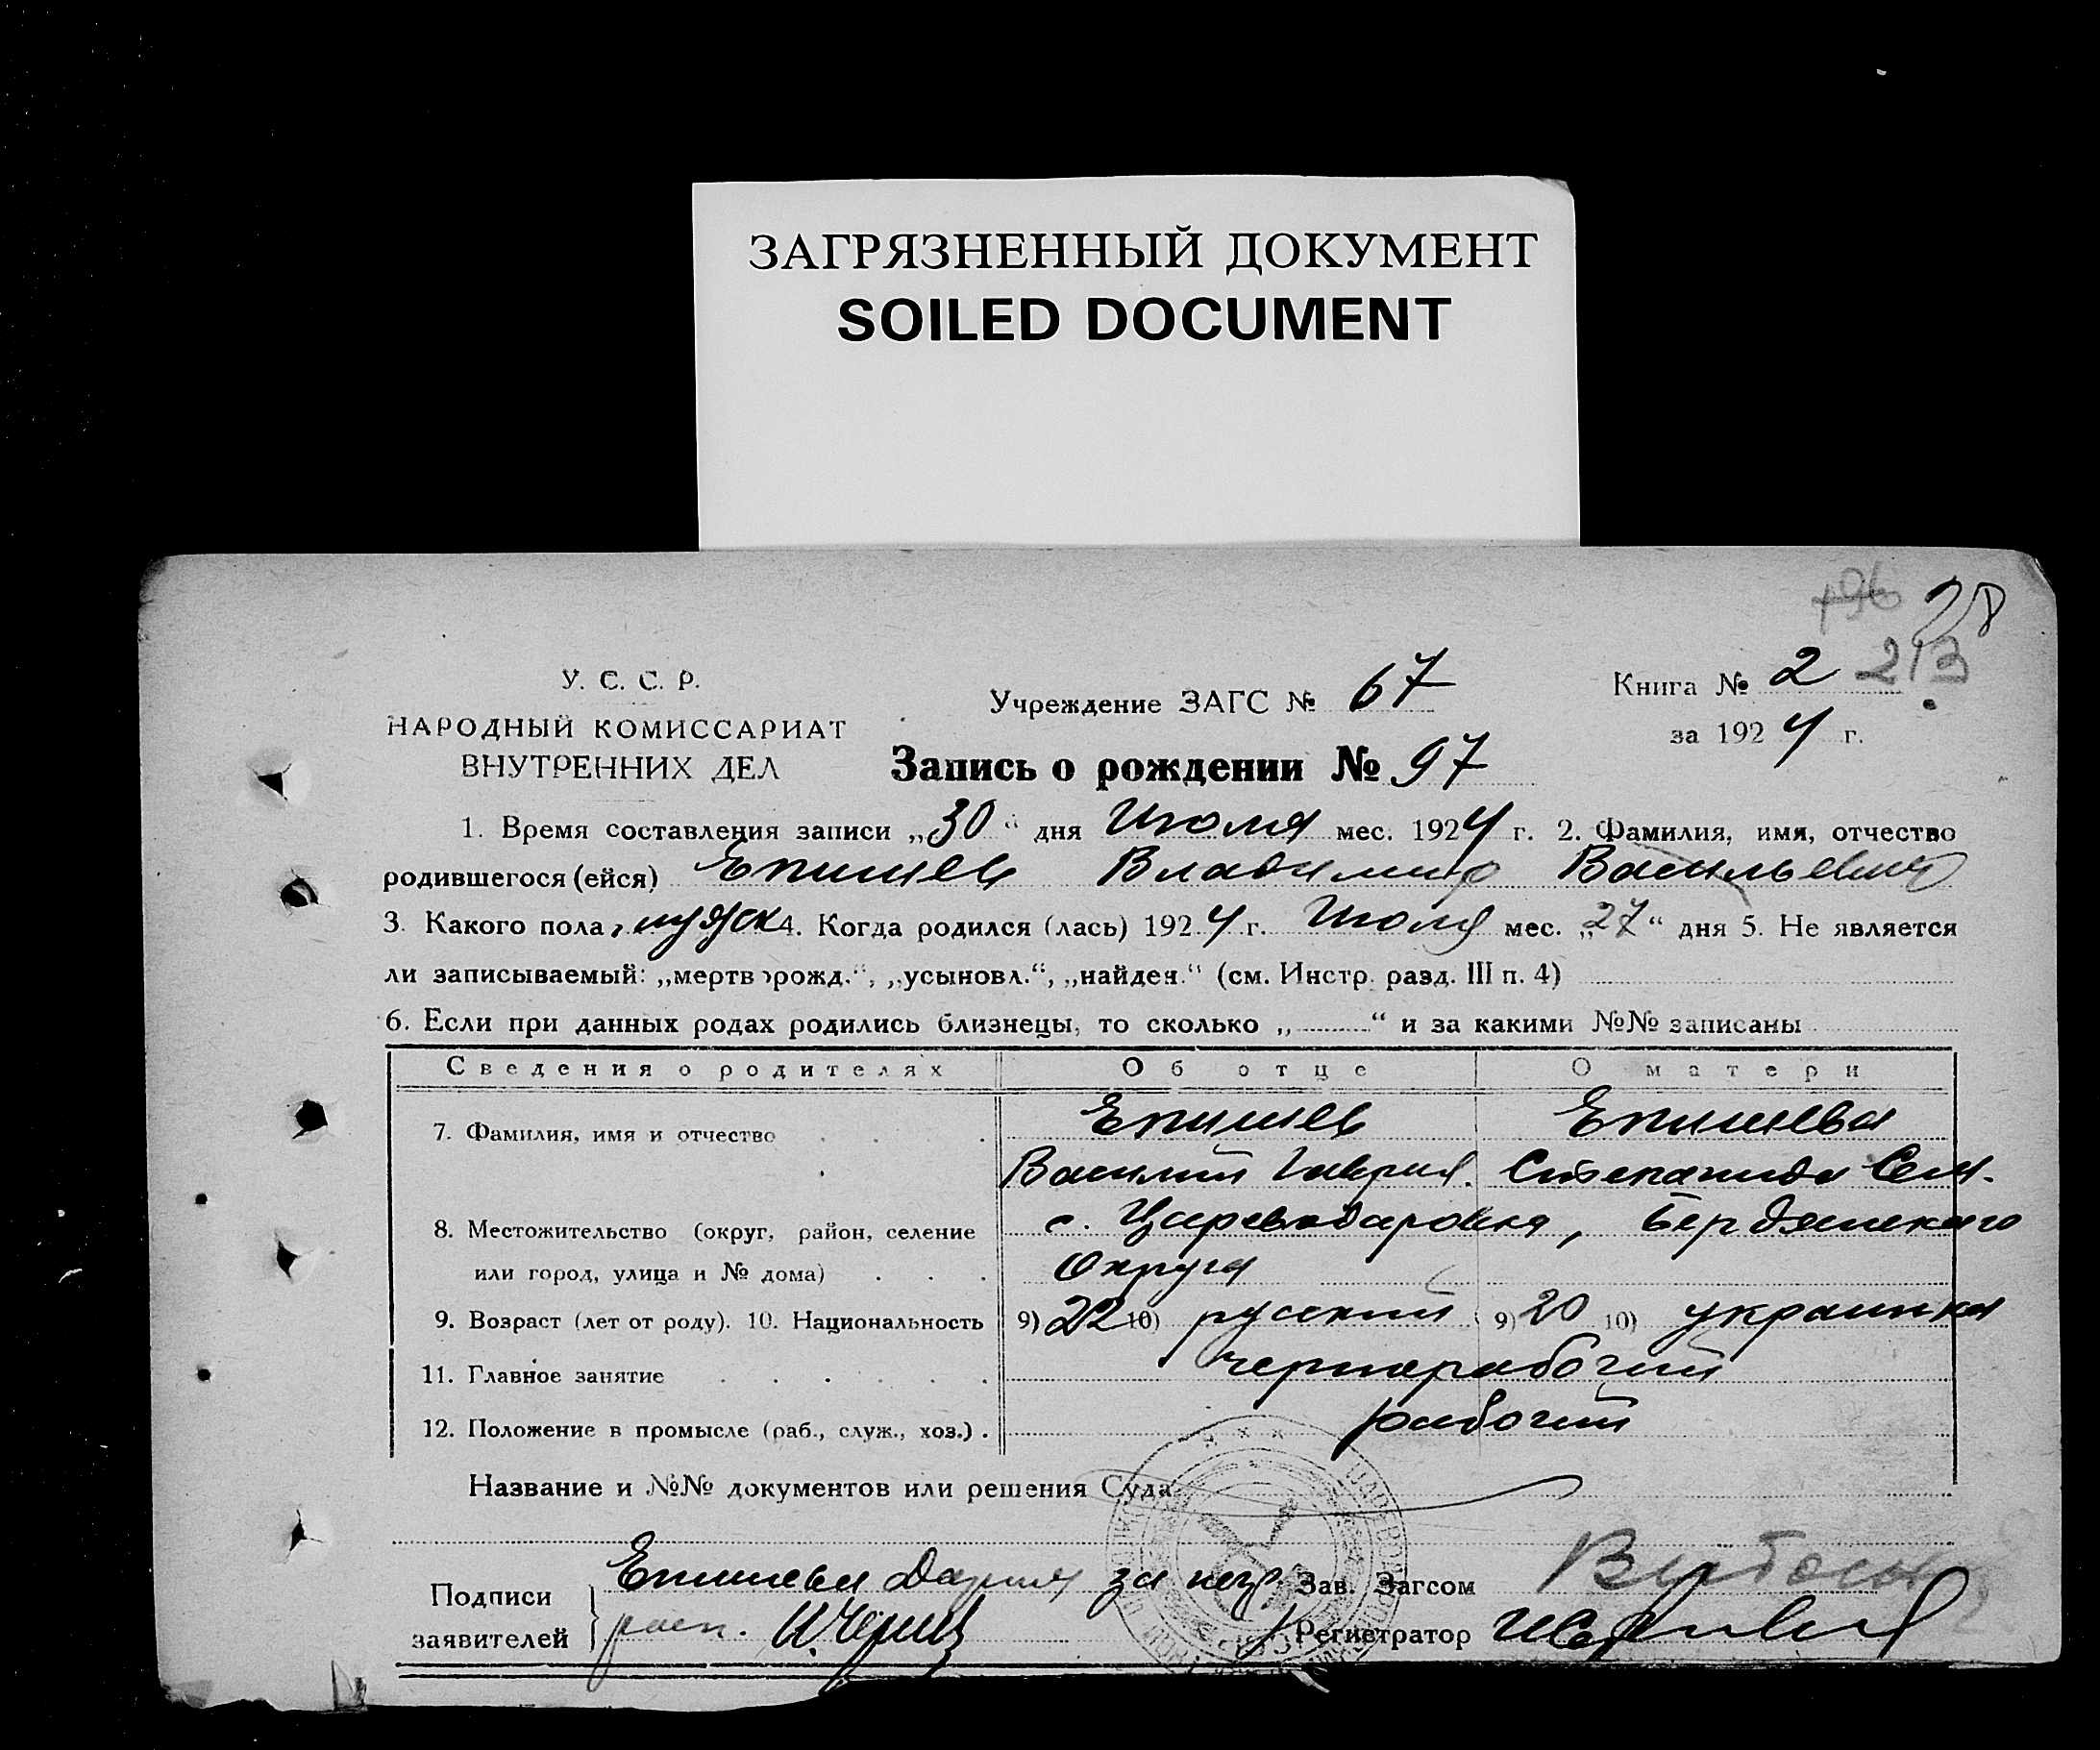 ЗАГРЯЗНЕННЫЙ ДОКУМЕНТ
SOILED DOCUMENT
196 28
У. С. С. Р.
НАРОДНЫЙ КОМИССАРИАТ
ВНУТРЕННИХ ДЕЛ
Учреждение ЗАГС № 67
Книга № 2 213
за 1924 г.
Запись о рождении № 97
1. Время составления записи „30“ дня Июля мес. 1924 г. 2. Фамилия, имя, отчество
родившегося (ейся) Епишев Владимир Васильевич
3. Какого пола, мужск 4. Когда родился (лась) 1924 г. Июля мес. „27“ дня 5. Не является
ли записываемый: „мертворожд.“, „усыновл.“, „найден.“ (см. Инстр. разд. III п. 4)
6. Если при данных родах родились близнецы, то сколько „ “ и за какими №№ записаны
Сведения о родителях Об отце О матери
7. Фамилия, имя и отчество Епишев Епишева
Василий Гаврил. Степанида Сем.
8. Местожительство (округ, район, селение с. Цареводаровка, Бердянского
или город, улица и № дома) Округа
9. Возраст (лет от роду). 10. Национальность 9) 22 10) русский 9) 20 10) украинка
11. Главное занятие чернорабочий
12. Положение в промысле (раб., служ., хоз.) рабочий
Название и №№ документов или решения Суда
Подписи заявителей Епишева Дария за негр. Зав. Загсом
расп. Регистратор